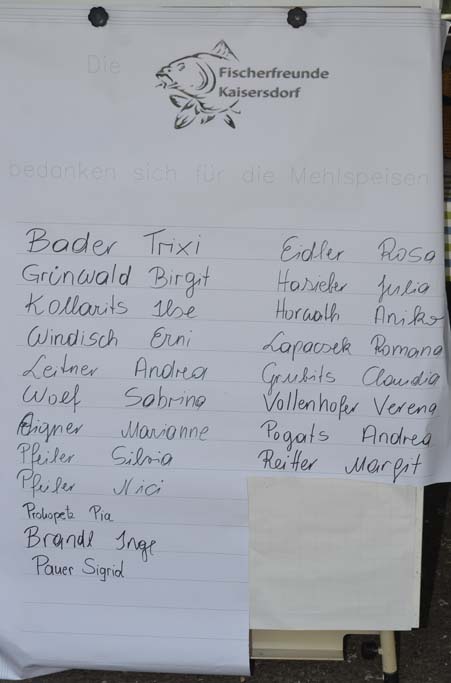 Die
Fischerfreunde
Kaisersdorf
bedanken sich für die Mehlspeisen
Bader Trixi
Grünwald Birgit
Kollarits Ilse
Windisch Erni
Leitner Andrea
Wolf Sabrina
Aigner Marianne
Pfeiler Silvia
Pfeiler Nici
Prokopetz Pia
Brandl Inge
Pauer Sigrid
Eidler Rosa
Hasieber Julia
Horvath Aniko
Lapacsek Romana
Grubits Claudia
Vollenhofer Verena
Pogats Andrea
Reitter Margit